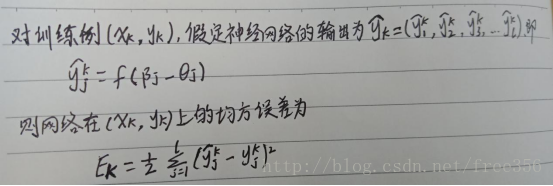 对训练例(xₖ, yₖ),假定神经网络的输出为ŷₖ=(ŷ₁ᵏ, ŷ₂ᵏ, ŷ₃ᵏ, … ŷₗᵏ),即
ŷⱼᵏ = f(βⱼ-θⱼ)
则网络在(xₖ, yₖ)上的均方误差为
Eₖ = ½ ∑ⱼ₌₁ˡ (ŷⱼᵏ - yⱼᵏ)²
http://blog.csdn.net/free356